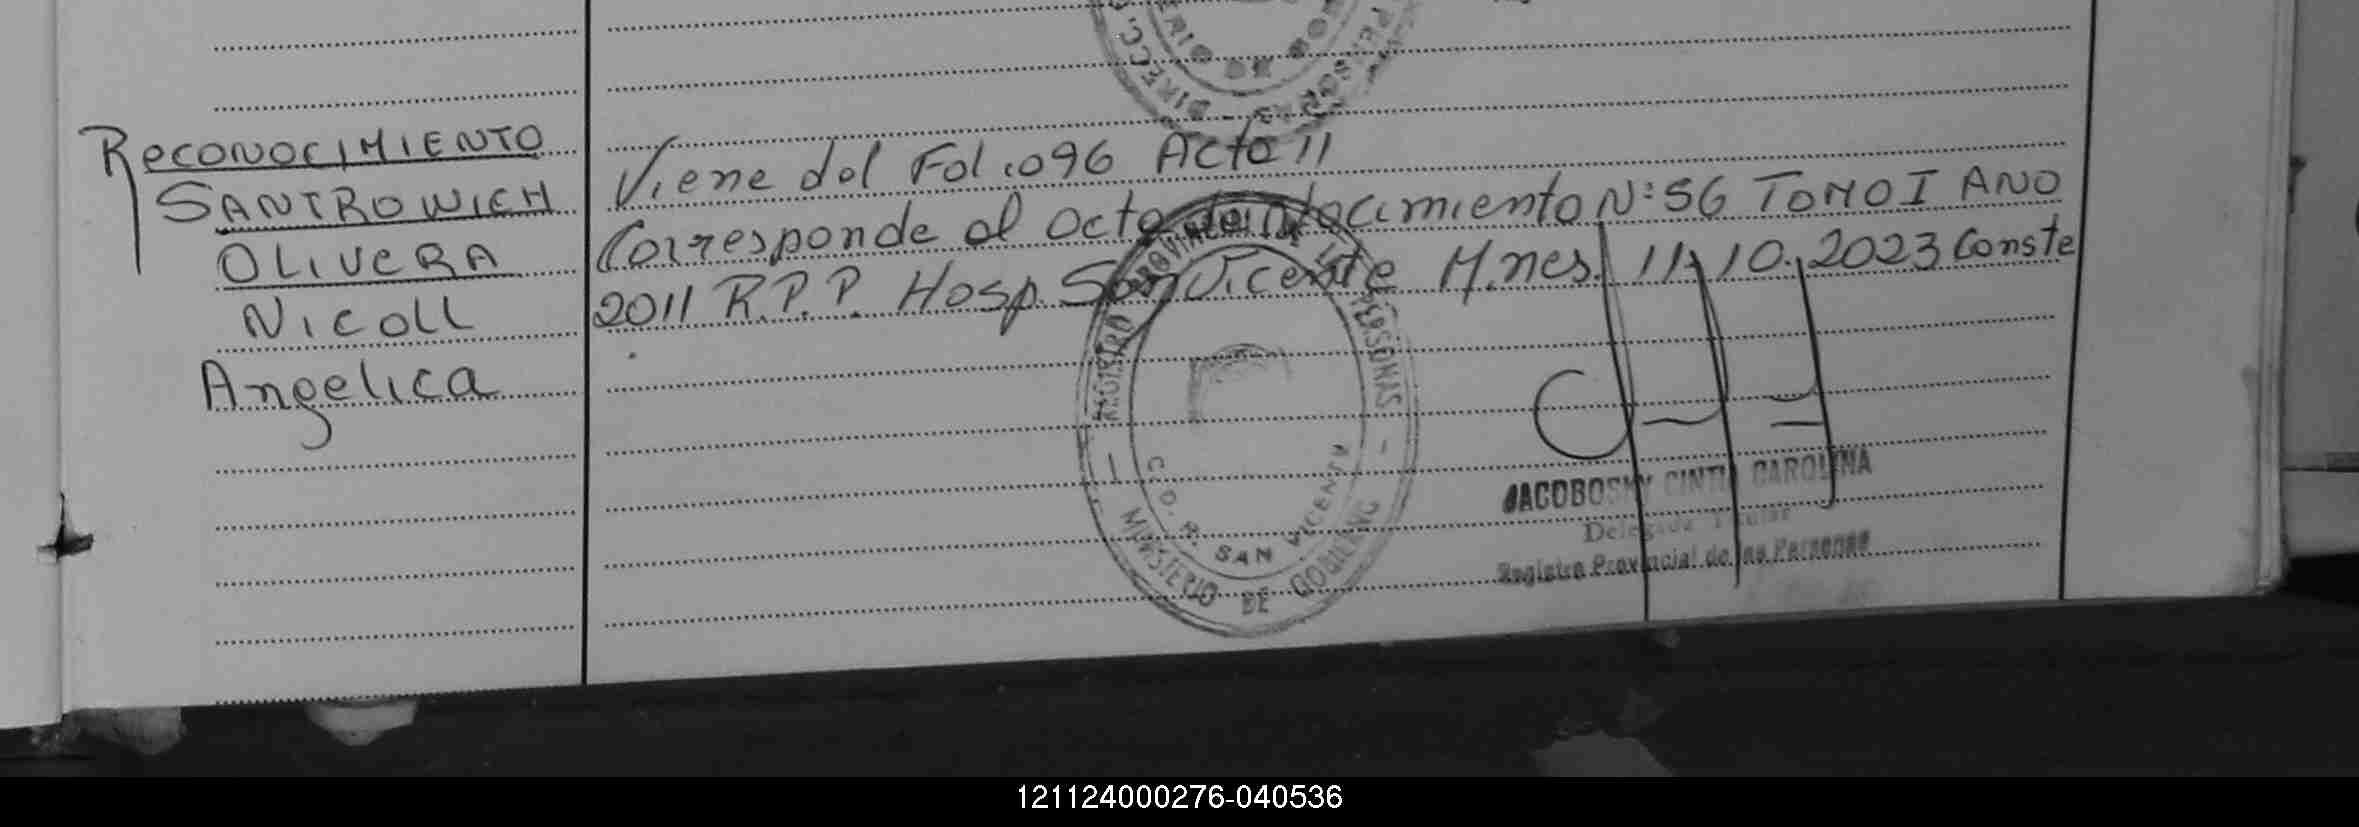 RECONOCIMIENTO
SANTROWICH
OLIVERA
Nicoll
Angelica
Viene del Folio 096 Acta 11
Corresponde al acta de Nacimiento N: 56 TOMO I AÑO
2011 R.P.P. Hosp. San Vicente M.nes. 11.10.2023 Conste
REGISTRO PROVINCIAL DE LAS PERSONAS
C.D.R. SAN VICENTE
MINISTERIO DE GOBIERNO
JACOBOSKY CINTIA CAROLINA
Delegada Titular
Registro Provincial de las Personas
121124000276-040536